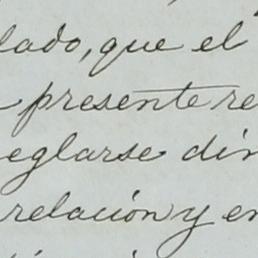 lado, que el
presente re
eglarse din
relación y en